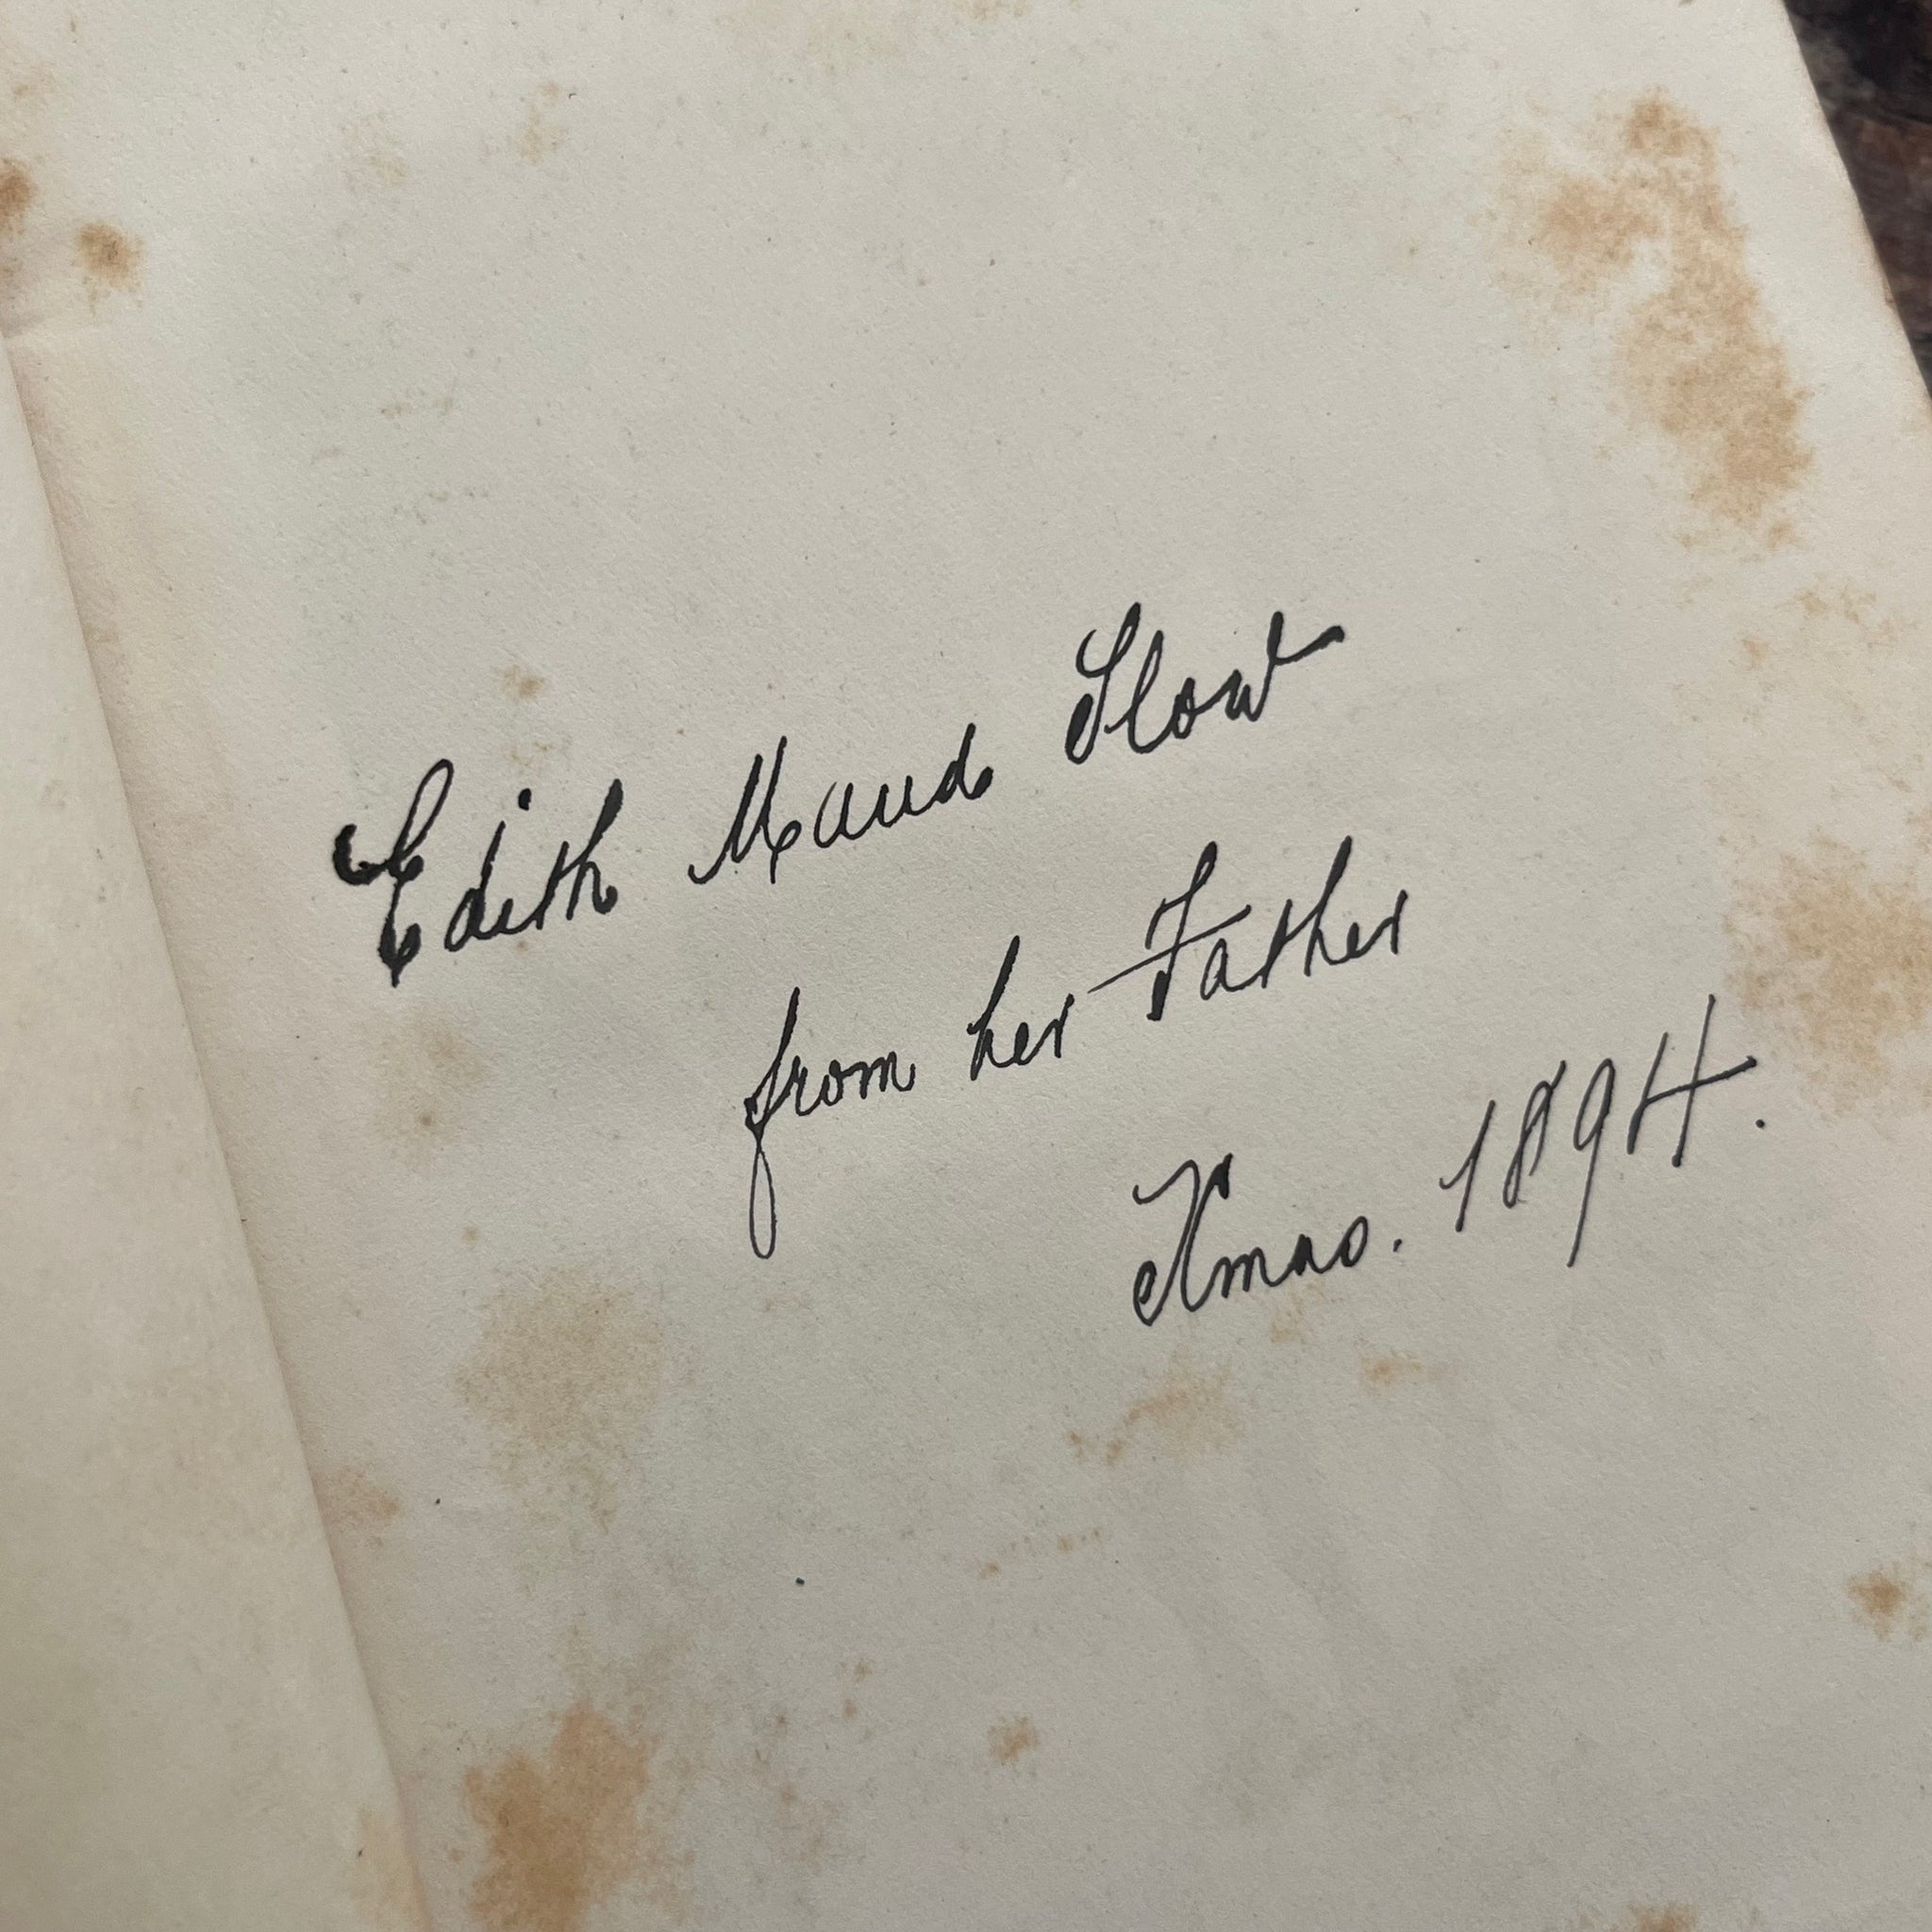 Edith Maud Slow
from her Father
Xmas. 1894.